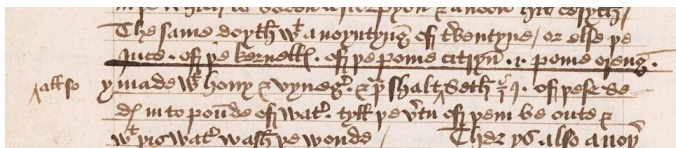 The same doyth wt anoyntyng off terbentyne / or else þe
Juce · off þe kernell · off þe pome citryn · i · pome oreng ·
also ymade wt hony & vyneg · & þu shalt seth · off pese se
in to pounde off wat · tyll þe vtu off þem be oute &
wt þis wat wash þe wonde / Ther ys also anoy